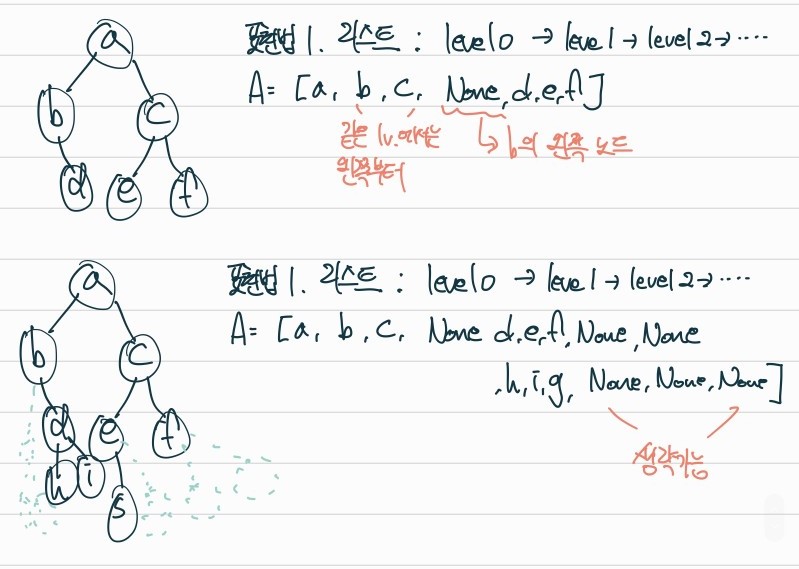 a
b c
d e f
표현법 1. 리스트 : level 0 → level 1 → level 2 → ....
A = [a, b, c, None, d, e, f]
같은 lv.에서는
왼쪽부터
b의 왼쪽 노드
a
b c
d e f
h i
g
표현법 1. 리스트 : level 0 → level 1 → level 2 → ....
A = [a, b, c, None d, e, f, None, None
, h, i, g, None, None, None]
생략가능